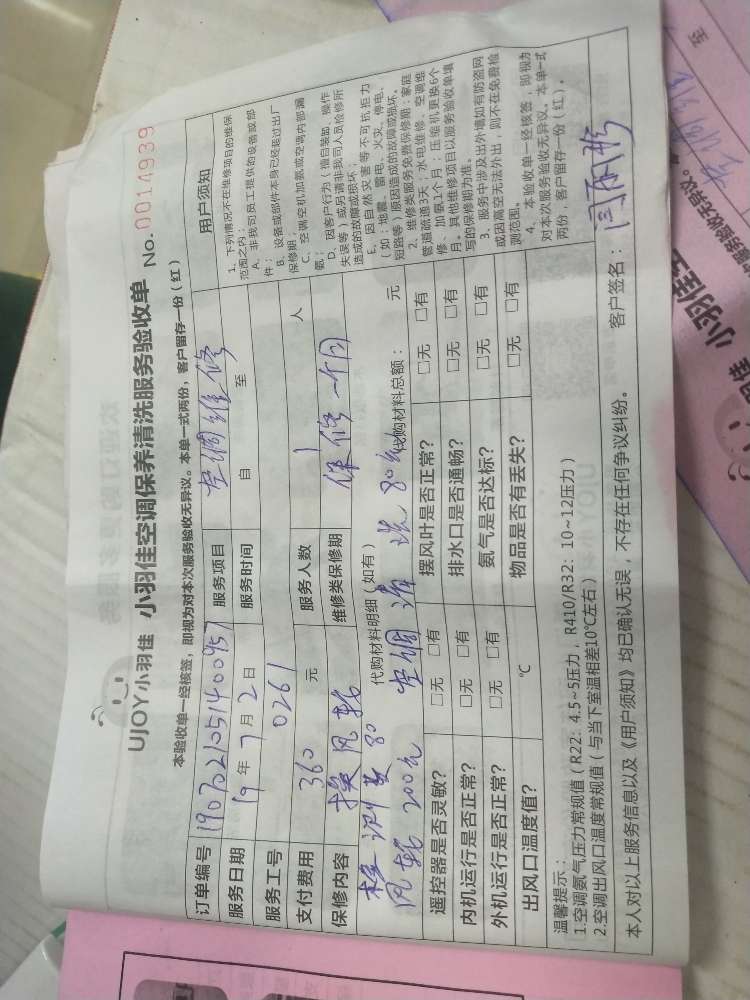 UJOY小羽佳 小羽佳空调保养清洗服务验收单 No. 0014939
本验收单一经核签，即视为对本次服务验收无异议。本单一式两份，客户留存一份（红）
订单编号 190702105140095 服务项目 空调维修
服务日期 19年7月2日 服务时间 自 至
服务工号 0261
支付费用 360 元 服务人数 1 人
保修内容 换风轮 维修类保修期 保修一个月
代购材料明细（如有） 代购材料总额： 元
检测费80 空调清洗80元
风轮200元
遥控器是否灵敏？ □无 □有 摆风叶是否正常？ □无 □有
内机运行是否正常？ □无 □有 排水口是否通畅？ □无 □有
外机运行是否正常？ □无 □有 氨气是否达标？ □无 □有
出风口温度值？ ℃ 物品是否有丢失？ □无 □有
用户须知
1、下列情况不在维修项目的维保
范围之内：
A、非我司员工提供的设备或部
件；
B、设备或部件本身已经超过出厂
保修期；
C、空调空机加氨或空调内部漏
氨；
D、因客户行为（擅自装卸、操作
失误等）或另请非我司人员检修所
造成的故障或损坏；
E、因自然灾害等不可抗拒力
（如：地震、雷电、火灾、停电、
短路等）原因造成的故障或损坏。
2、维修类服务免费保修期：家庭
管道疏通3天；水电维修、空调维
修、加氨1个月；压缩机更换6个
月。其他维修项目以服务验收单填
写的保修期为准。
3、服务中涉及出外墙如有防盗网
或因高空无法外出，则不在免费检
测范围。
4、本验收单一经核签，即视为
对本次服务验收无异议。本单一式
两份，客户留存一份（红）。
温馨提示：
1.空调氨气压力常规值（R22：4.5~5压力，R410/R32：10~12压力）
2.空调出风口温度常规值（与当下室温相差10℃左右）
本人对以上服务信息以及《用户须知》均已确认无误，不存在任何争议纠纷。 客户签名：
小羽佳